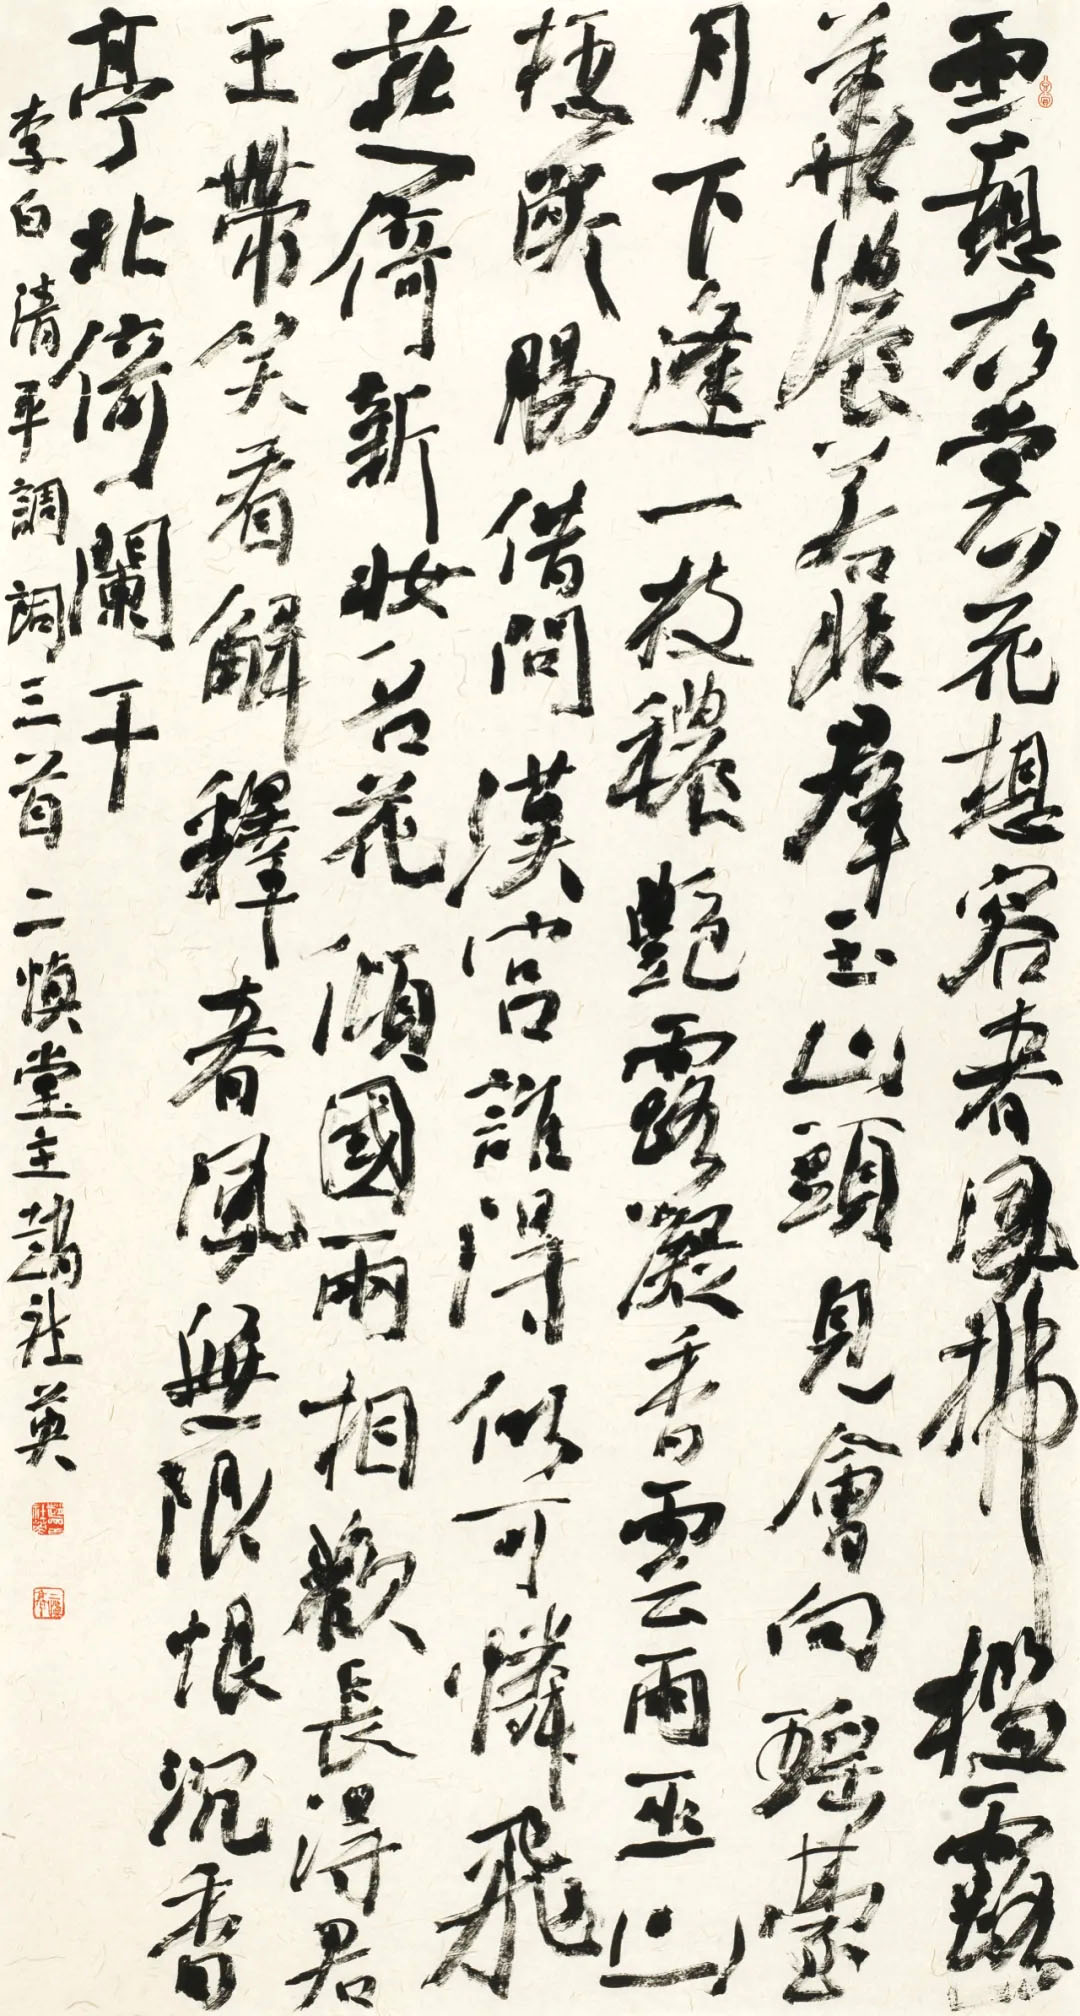 雲想衣裳花想容春風拂檻露
華濃若非羣玉山頭見會向瑤臺
月下逢一枝穠艷露凝香雲雨巫山
枉斷腸借問漢宮誰得似可憐飛
燕倚新妝名花傾國兩相歡長得君
王帶笑看解釋春風無限恨沉香
亭北倚闌干
李白清平調詞三首二慎堂主趙社英